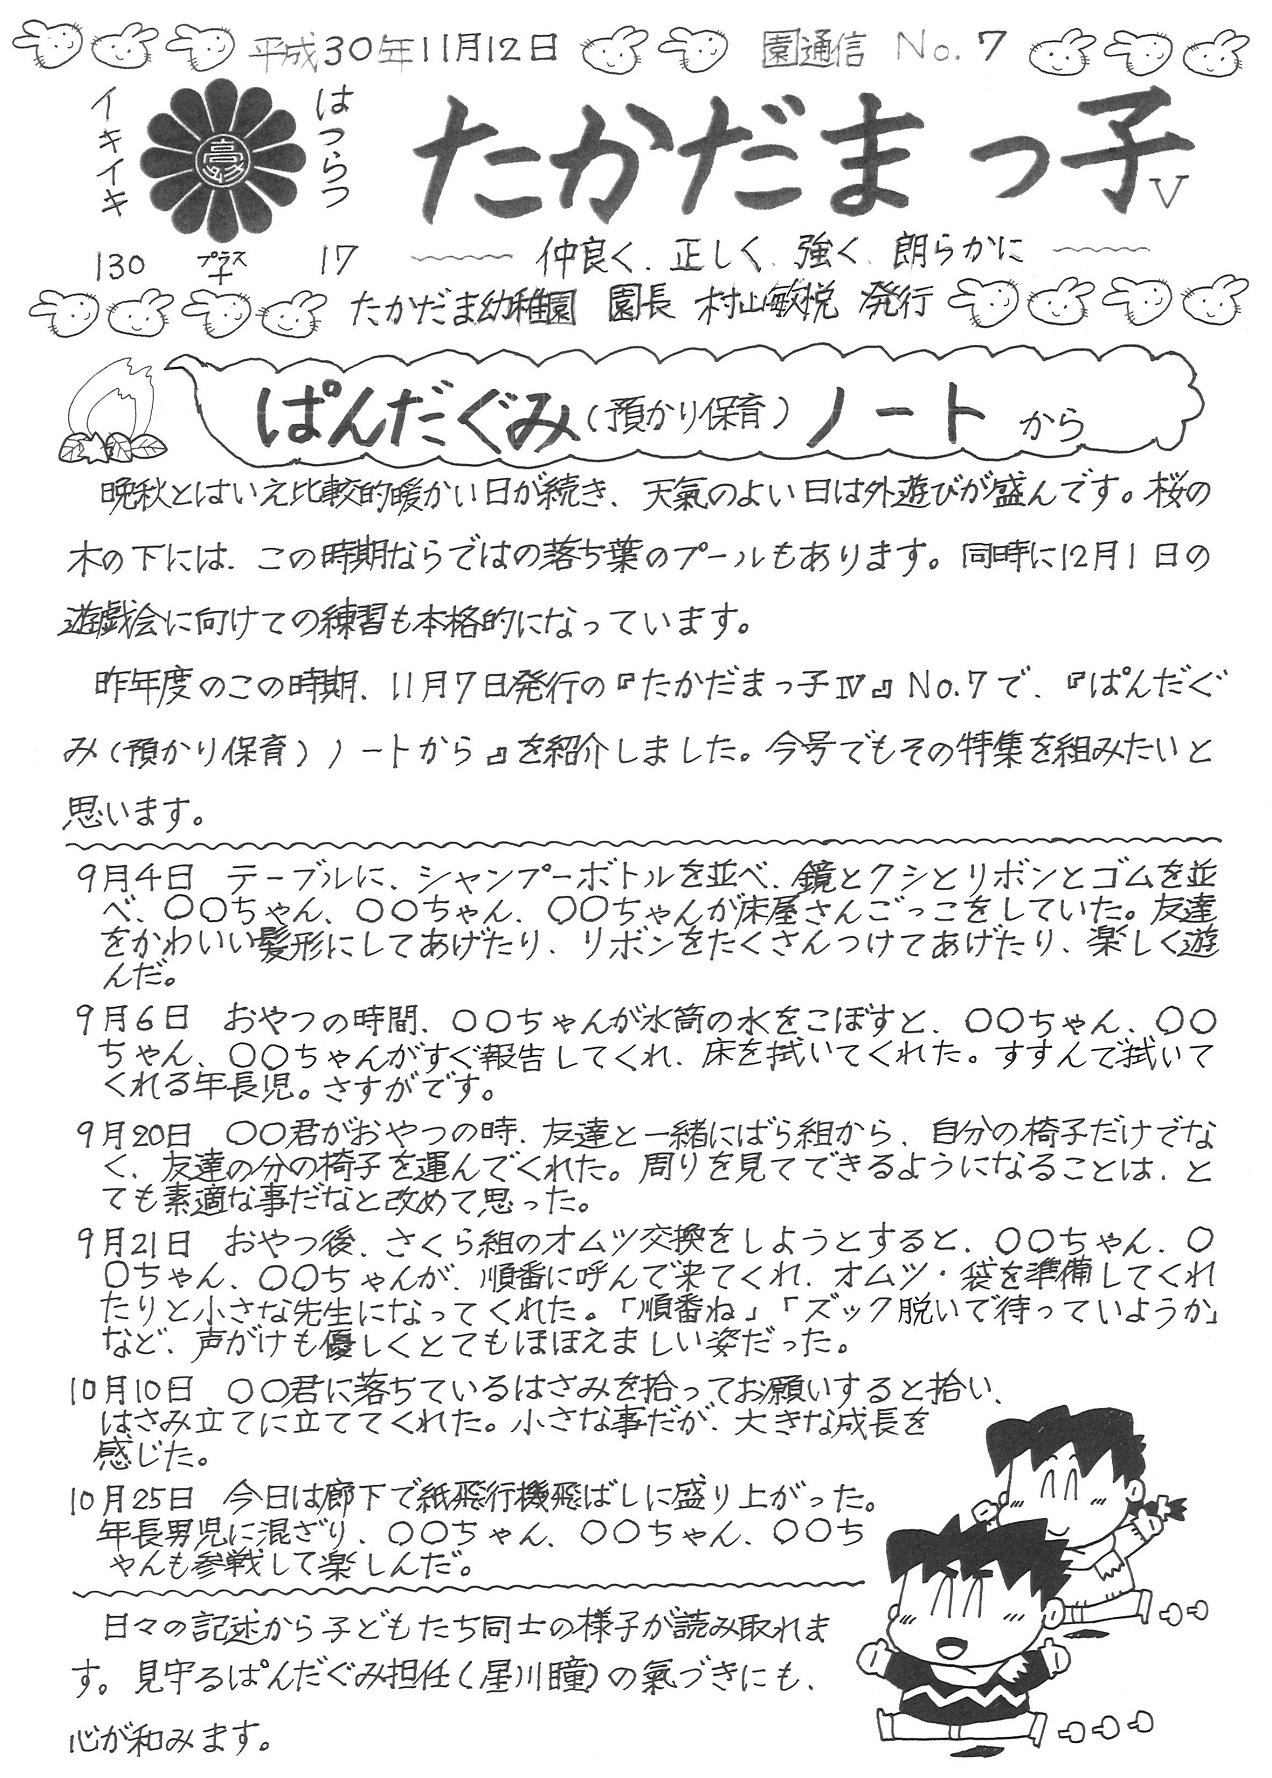 平成30年11月12日 園通信 No.7
イキイキ はつらつ
たかだまっ子V
130 プラス+ 17
仲良く、正しく、強く、朗らかに
たかだま幼稚園 園長 村山敏悦 発行
ぱんだぐみ(預かり保育)ノートから
晩秋とはいえ比較的暖かい日が続き、天氣のよい日は外遊びが盛んです。桜の
木の下には、この時期ならではの落ち葉のプールもあります。同時に12月1日の
遊戯会に向けての練習も本格的になっています。
昨年度のこの時期、11月7日発行の『たかだまっ子Ⅳ』No.7で、『ぱんだぐ
み(預かり保育)ノートから』を紹介しました。今号でもその特集を組みたいと
思います。
9月4日 テーブルに、シャンプーボトルを並べ、鏡とクシとリボンとゴムを並
べ、○○ちゃん、○○ちゃん、○○ちゃんが床屋さんごっこをしていた。友達
をかわいい髪形にしてあげたり、リボンをたくさんつけてあげたり、楽しく遊
んだ。
9月6日 おやつの時間、○○ちゃんが水筒の水をこぼすと、○○ちゃん、○○
ちゃん、○○ちゃんがすぐ報告してくれ、床を拭いてくれた。すすんで拭いて
くれる年長児。さすがです。
9月20日 ○○君がおやつの時、友達と一緒にばら組から、自分の椅子だけでな
く、友達の分の椅子を運んでくれた。周りを見てできるようになることは、と
ても素適な事だなと改めて思った。
9月21日 おやつ後、さくら組のオムツ交換をしようとすると、○○ちゃん、○
○ちゃん、○○ちゃんが、順番に呼んで来てくれ、オムツ・袋を準備してくれ
たりと小さな先生になってくれた。「順番ね」「ズック脱いで待っていようか」
など、声がけも優しくとてもほほえましい姿だった。
10月10日 ○○君に落ちているはさみを拾ってお願いすると拾い、
はさみ立てに立ててくれた。小さな事だが、大きな成長を
感じた。
10月25日 今日は廊下で紙飛行機飛ばしに盛り上がった。
年長男児に混ざり、○○ちゃん、○○ちゃん、○○ち
ゃんも参戦して楽しんだ。
日々の記述から子どもたち同士の様子が読み取れま
す。見守るぱんだぐみ担任(星川瞳)の氣づきにも、
心が和みます。